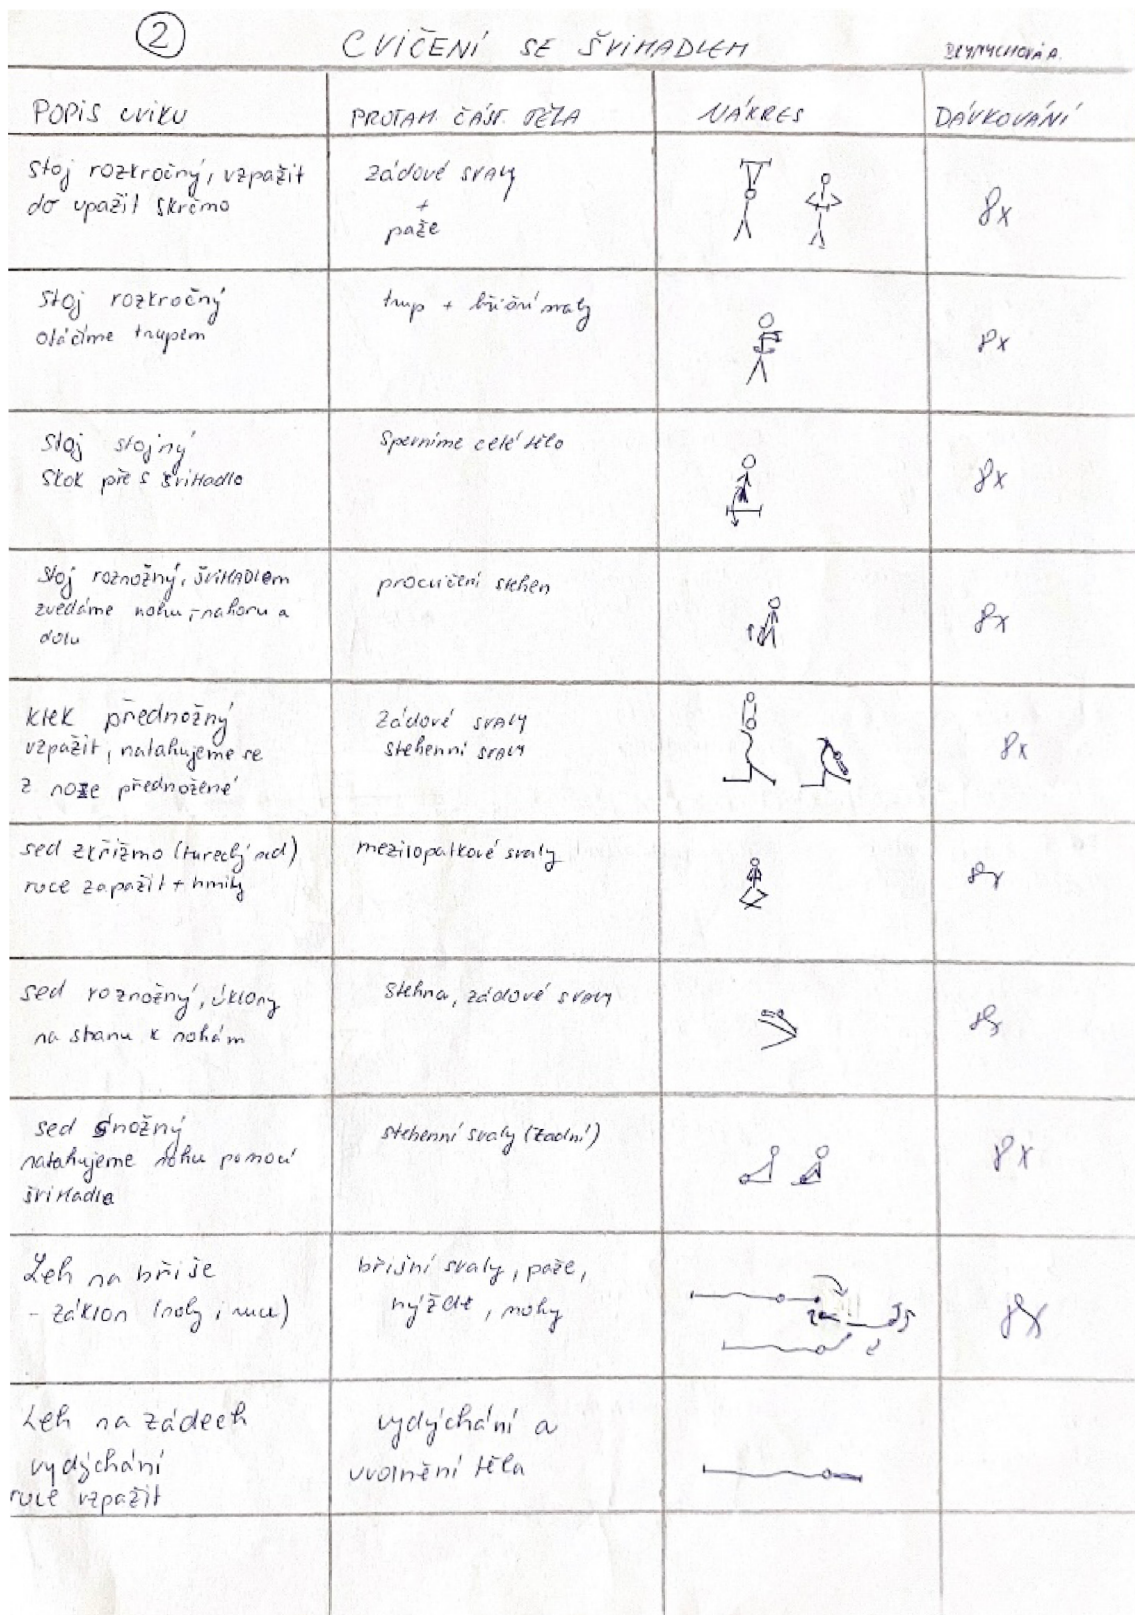 2
CVIČENÍ SE ŠVIHADLEM
POPIS CVIKU
PROTAH. ČÁST. TĚLA
NÁKRES
DÁVKOVÁNÍ
stoj rozkročný, vzpažit
do upažit skrčmo
zádové svaly
+
paže
8x
stoj rozkročný
otáčíme trupem
trup + břišní svaly
8x
stoj stojný
skok přes švihadlo
zpevníme celé tělo
8x
stoj roznožný, švihadlem
zvedáme nohu, nahoru a
dolu
procvičení stehen
8x
klek přednožný
vzpažit, natahujeme se
z noze přednožené
zádové svaly
stehenní svaly
8x
sed zkřižmo (turecký sed)
ruce zapažit + hmity
mezilopatkové svaly
8x
sed roznožný, úklony
na stranu k nohám
stehna, zádové svaly
8x
sed snožný
natahujeme nohu pomocí
švihadla
stehenní svaly (zadní)
8x
Leh na břiše
- záklon (nohy i ruce)
břišní svaly, paže,
hýždě, nohy
8x
Leh na zádech
vydýchání
ruce vzpažit
vydýchání a
uvolnění těla